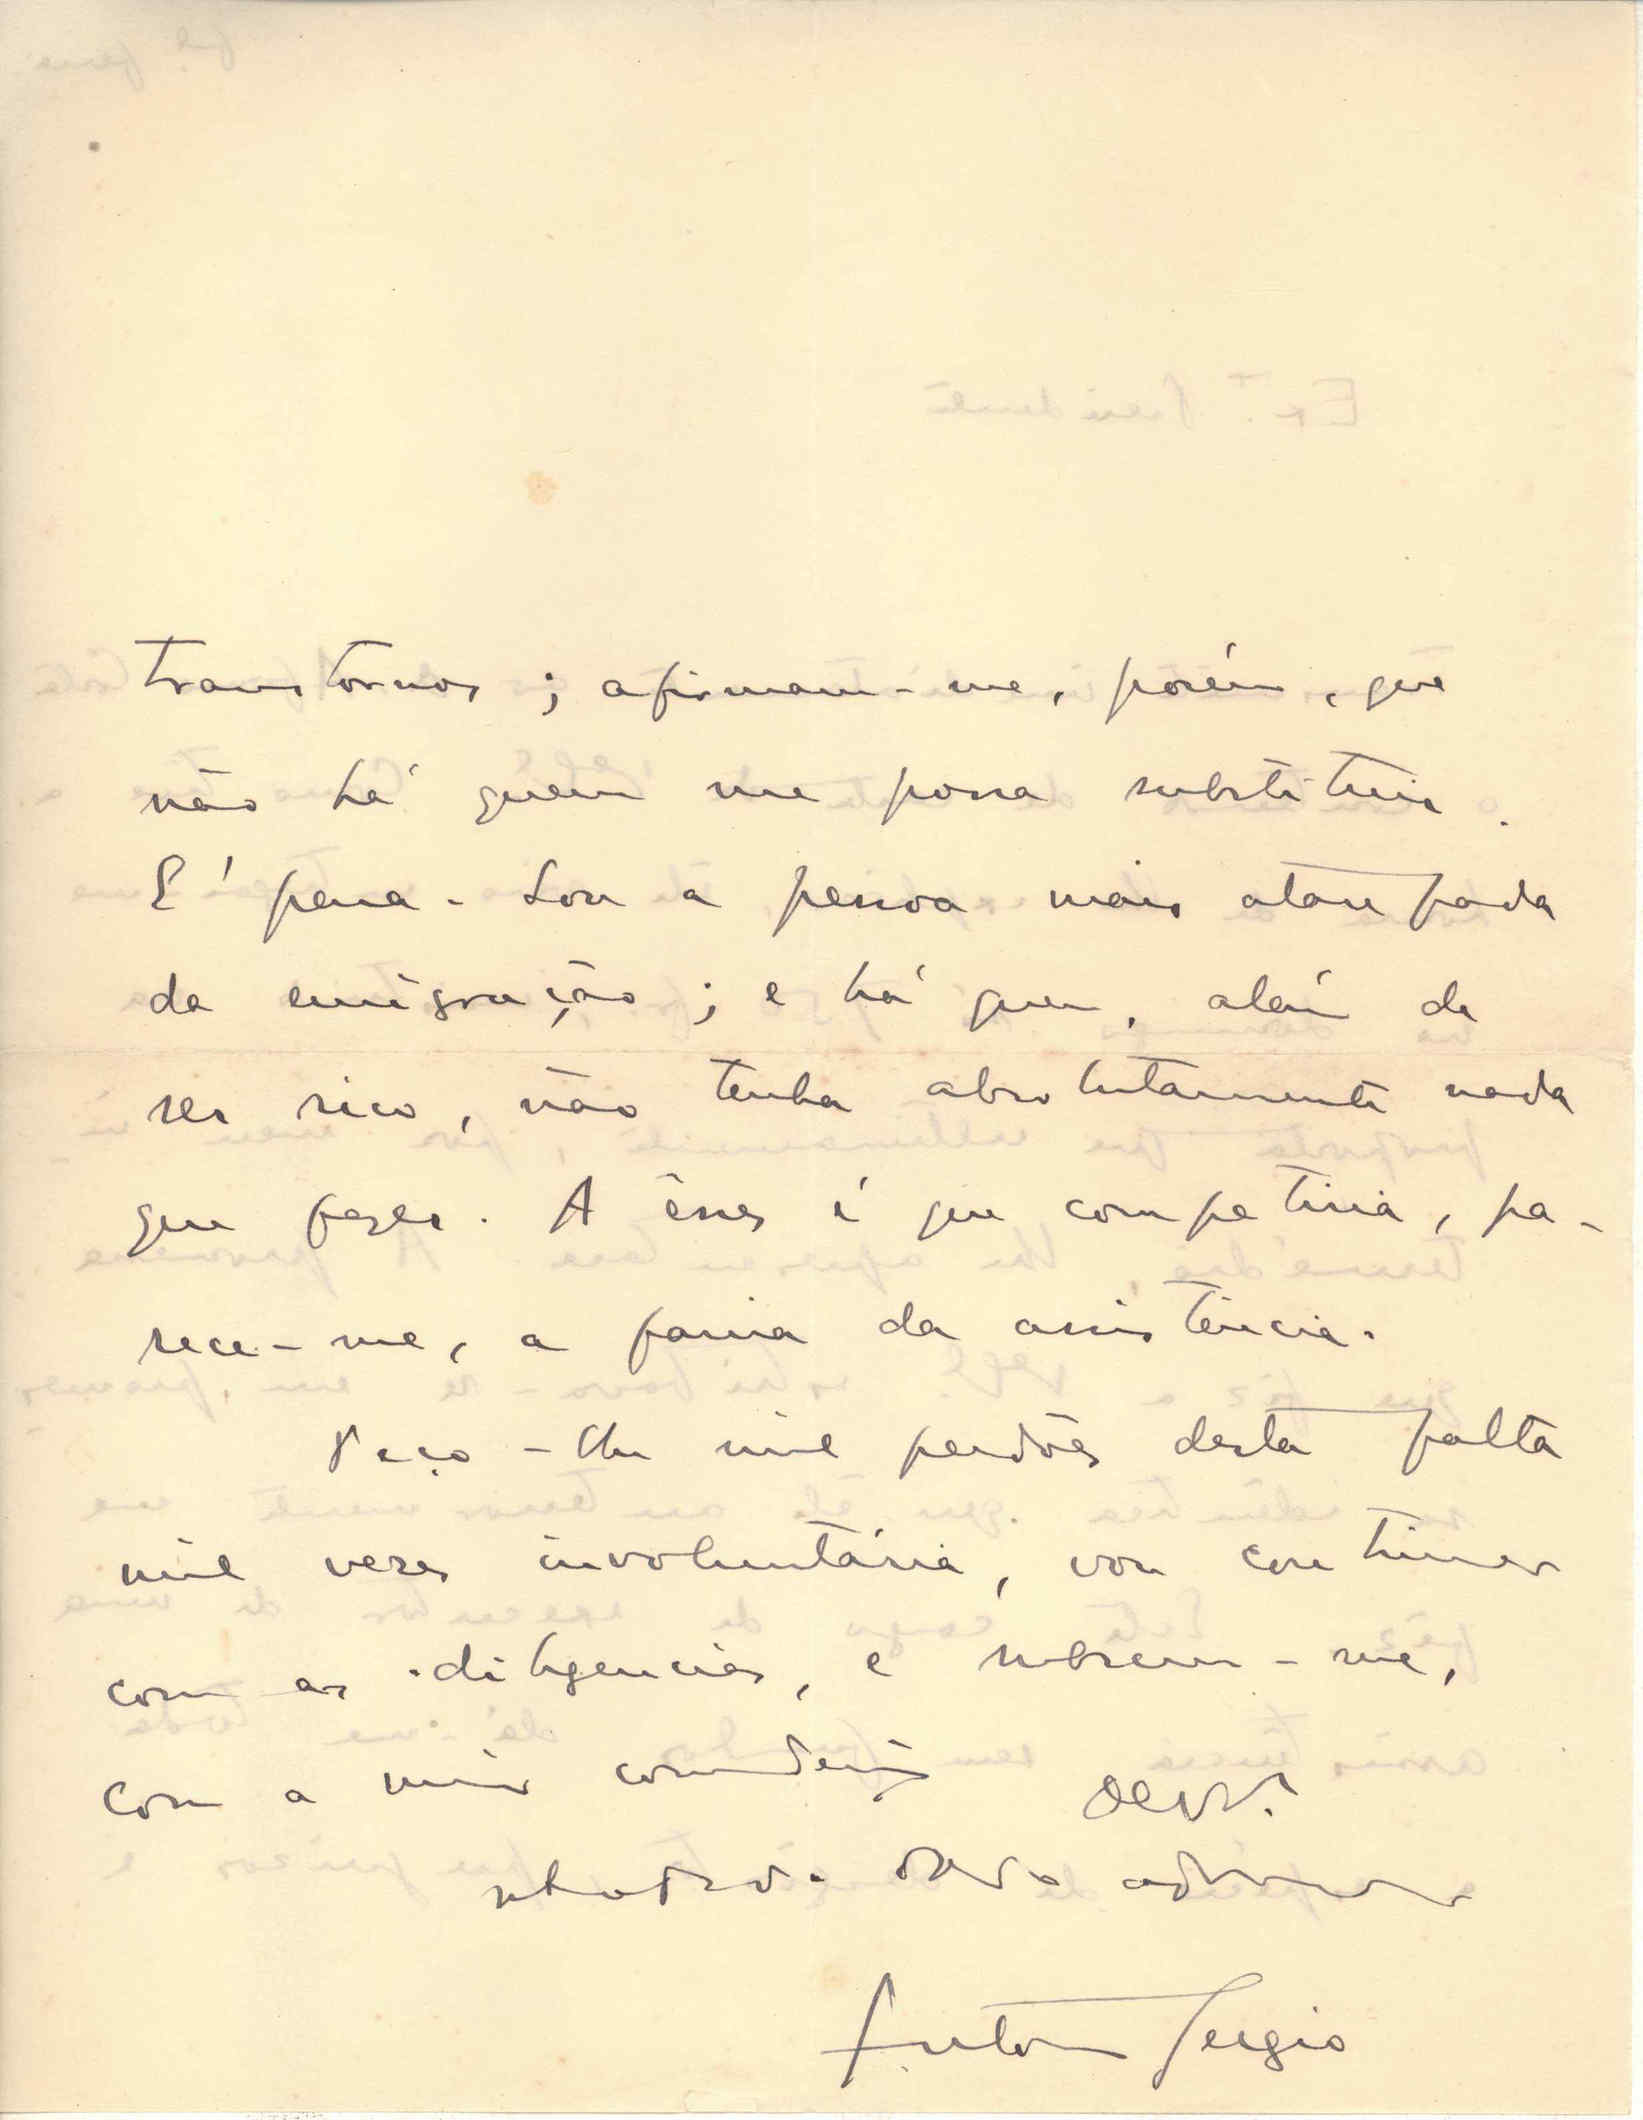 transtornos; afirmam-me, porém, que
não há quem me possa substituir.
E' pena. Sou a pessoa mais atarefada
da emigração; e há quem, além de
ser rico, não tenha absolutamente nada
que fazer. A êsses é que competiria, pa-
rece-me, a faina da assistência.
Peço-lhe mil perdões desta falta
mil vezes involuntária, vou continuar
com as diligencias, e subscrevo-me,
com a maior consideração
admirador
Antonio Sergio